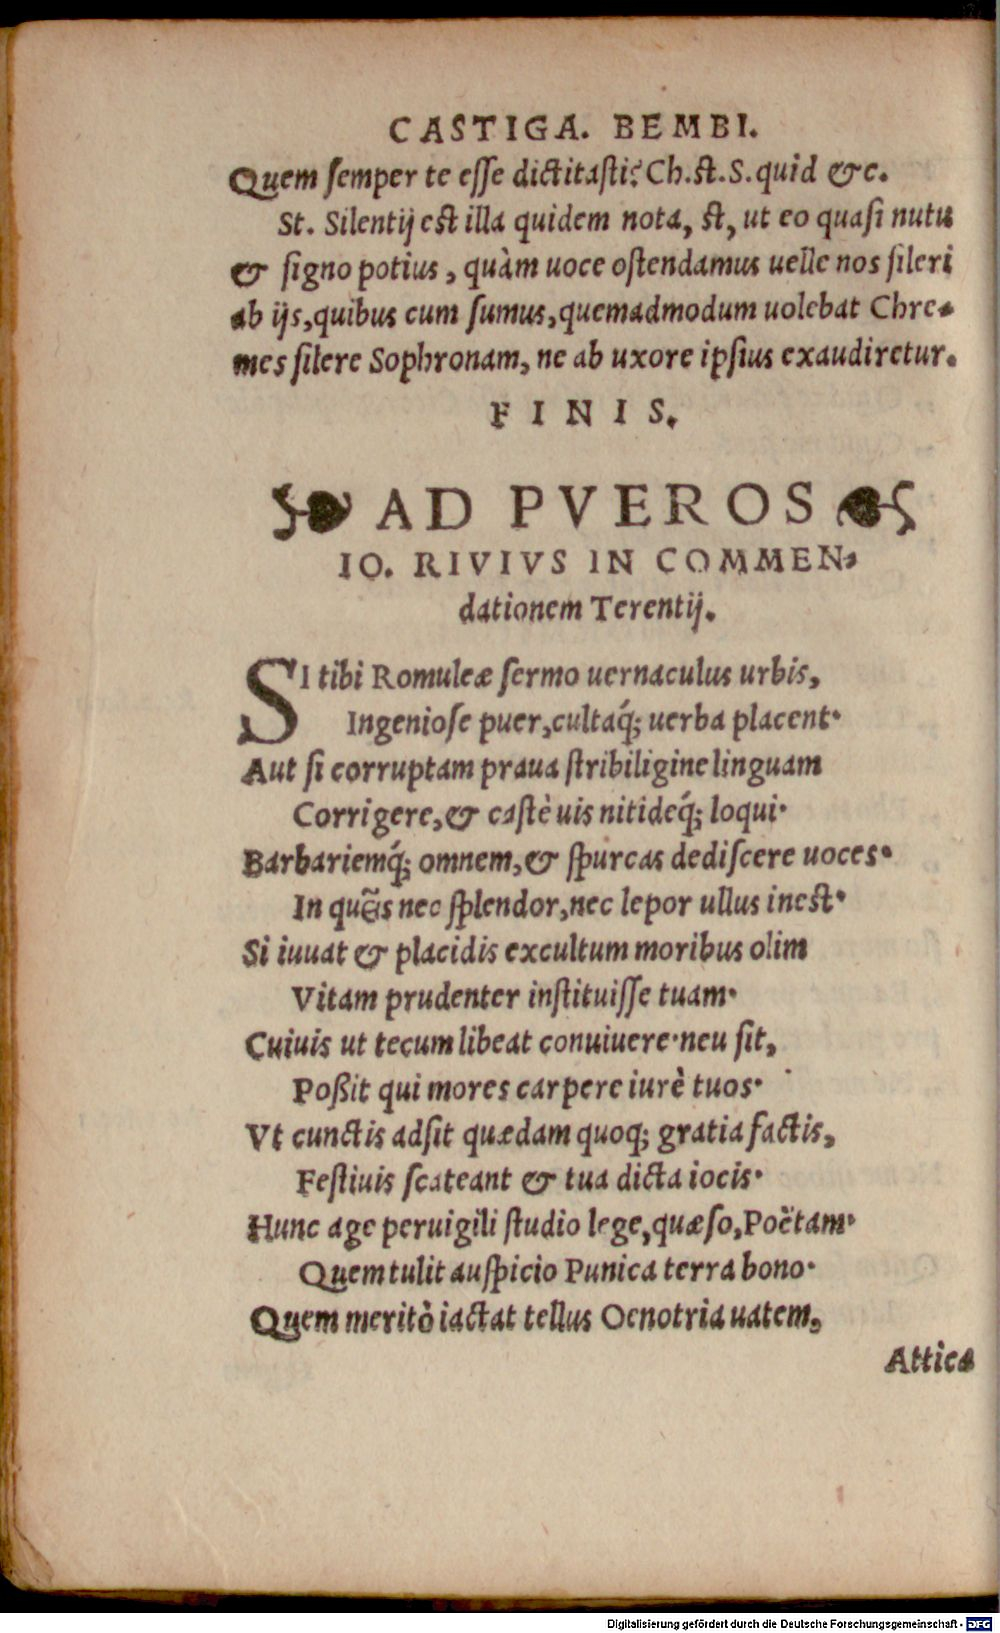 CASTIGA. BEMBI.
Quem semper te esse dictitasti? Ch. st. S. quid &c.
St. Silentij est illa quidem nota, st, ut eo quasi nutu
& signo potius, quàm uoce ostendamus uelle nos sileri
ab ijs, quibus cum sumus, quemadmodum uolebat Chre-
mes silere Sophronam, ne ab uxore ipsius exaudiretur.
FINIS.
AD PVEROS
IO. RIVIVS IN COMMEN-
dationem Terentij.
SI tibi Romuleæ sermo uernaculus urbis,
Ingeniose puer, cultaq́; uerba placent·
Aut si corruptam praua stribiligine linguam
Corrigere, & castè uis nitideq́; loqui·
Barbariemq́; omnem, & spurcas dediscere uoces·
In queis nec splendor, nec lepor ullus inest·
Si iuuat & placidis excultum moribus olim
Vitam prudenter instituisse tuam·
Cuiuis ut tecum libeat conuiuere· neu sit,
Poßit qui mores carpere iurè tuos·
Vt cunctis adsit quædam quoq; gratia factis,
Festiuis scateant & tua dicta iocis·
Hunc age peruigili studio lege, quæso, Poëtam·
Quem tulit auspicio Punica terra bono·
Quem meritò iactat tellus Oenotria uatem,
Attica
Digitalisierung gefördert durch die Deutsche Forschungsgemeinschaft - DFG